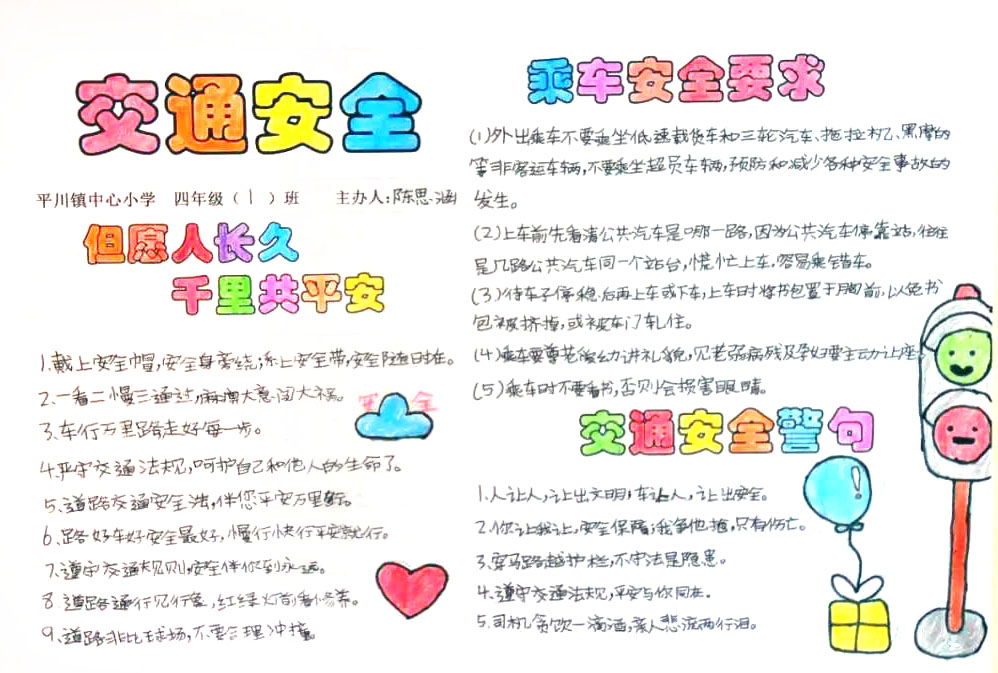 交通安全
平川镇中心小学 四年级（1）班 主办人:陈思涵
但愿人长久
千里共平安
1.戴上安全帽,安全身旁绕;系上安全带,安全随时在。
2.一看二慢三通过,麻痹大意闯大祸。
3.车行万里路走好每一步。
4.严守交通法规,呵护自己和他人的生命了。
5.道路交通安全法,伴您平安万里行。
6.路好车好安全最好,慢行快行平安就行。
7.遵守交通规则,安全伴你到永远。
8 道路通行见行象,红绿灯前看修养。
9.道路非比球场,不要合理冲撞。
安全
乘车安全要求
(1)外出乘车不要乘坐低速载货车和三轮汽车、拖拉机、黑摩的
等非客运车辆,不要乘坐超员车辆,预防和减少各种安全事故的
发生。
(2)上车前先看清公共汽车是哪一路,因为公共汽车停靠站,往往
是几路公共汽车同一个站台,慌忙上车,容易乘错车。
(3)待车子停稳后再上车或下车,上车时将书包置于胸前,以免书
包被挤掉,或被车门轧住。
(4)乘车要尊老爱幼讲礼貌,见老弱病残及孕妇要主动让座。
(5)乘车时不要看书,否则会损害眼睛。
交通安全警句
1.人让人,让出文明;车让人,让出安全。
2.你让我让,安全保障;我争他抢,只有伤亡。
3.穿马路越护栏,不守法是隐患。
4.遵守交通法规,平安与你同在。
5.司机贪饮一滴酒,亲人悲流两行泪。